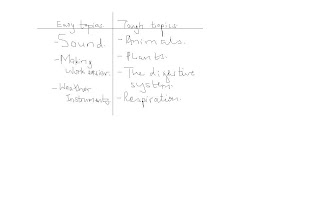 Easy topics
- Sound.
- Making
work easier.
- Weather
Instruments
Tough topics
- Animals.
- Plants.
- The digestive
system.
- Respiration.